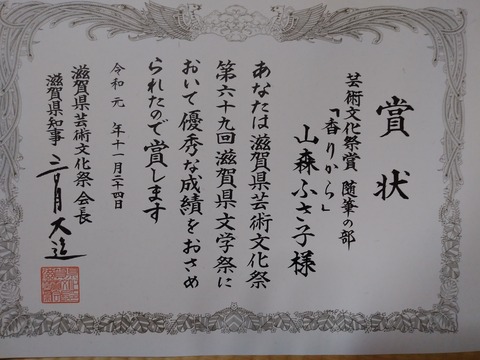 賞状
芸術文化祭賞 随筆の部
「香りから」
山森ふさ子様
あなたは滋賀県芸術文化祭
第六十九回滋賀県文学祭に
おいて優秀な成績をおさめ
られたので賞します
令和元年十一月二十四日
滋賀県芸術文化祭会長
滋賀県知事 三日月大造